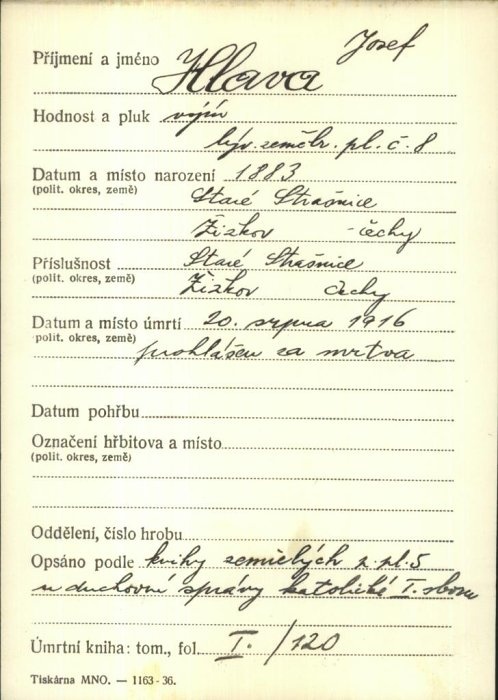 Josef
Příjmení a jméno Hlava
Hodnost a pluk vojín
býv. zeměbr. pl. č. 8
Datum a místo narození 1883
(polit. okres, země) Staré Strašnice
Žižkov - Čechy
Příslušnost Staré Strašnice
(polit. okres, země) Žižkov Čechy
Datum a místo úmrtí 20. srpna 1916
polit. okres, země) prohlášen za mrtva
Datum pohřbu
Označení hřbitova a místo
(polit. okres, země)
Oddělení, číslo hrobu
Opsáno podle knihy zemřelých z. pl. 5
u duchovní správy katolické I. sboru
Úmrtní kniha: tom., fol. I. /120
Tiskárna MNO. — 1163-36.